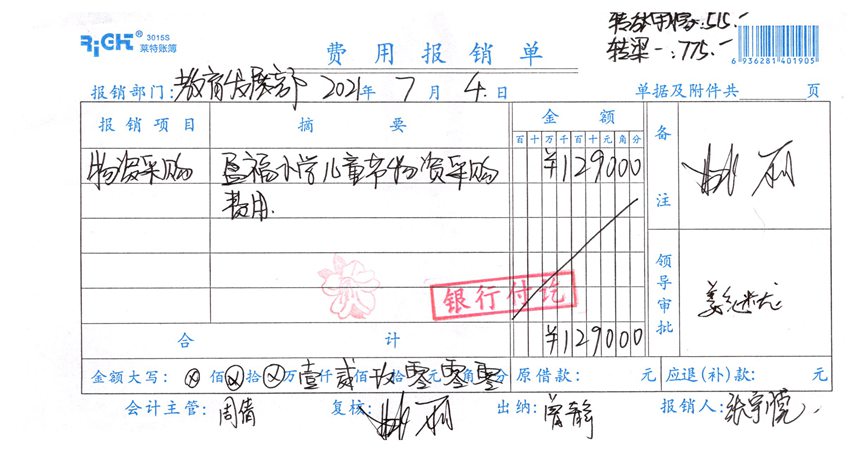 RiGHT® 3015S
莱特账簿
转林用松:515.-
转梁一:775.-
6 936281 401905
费用报销单
报销部门:教育发展部 2021年 7 月 4 日 单据及附件共 页
报销项目 摘要 金额 备注
百十万千百十元角分
物资采购 盈福小学儿童节物资采购 ¥129000 姚利
费用.
银行付讫
领导审批 姜继光
合计 ¥129000
金额大写: ⊗ 佰 ⊗ 拾 ⊗ 万 壹 仟 贰 佰 玖 拾 零 元 零 角 零 分 原借款: 元 应退(补)款: 元
会计主管:周倩 复核:姚利 出纳:曾静 报销人:张宇